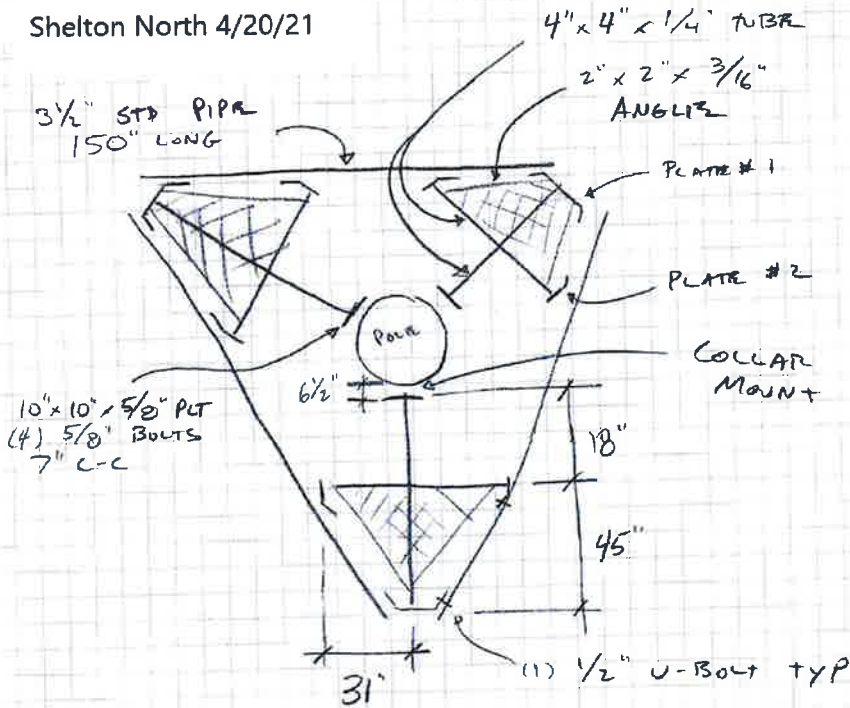 Shelton North 4/20/21
4" x 4" x 1/4" TUBE
2" x 2" x 3/16"
ANGLE
3 1/2" STD PIPE
150" LONG
PLATE # 1
PLATE #2
POLE
COLLAR
MOUNT
6 1/2"
10" x 10" x 5/8" PLT
(4) 5/8" BOLTS
7" C-C
18"
45"
31"
(1) 1/2" U-BOLT TYP